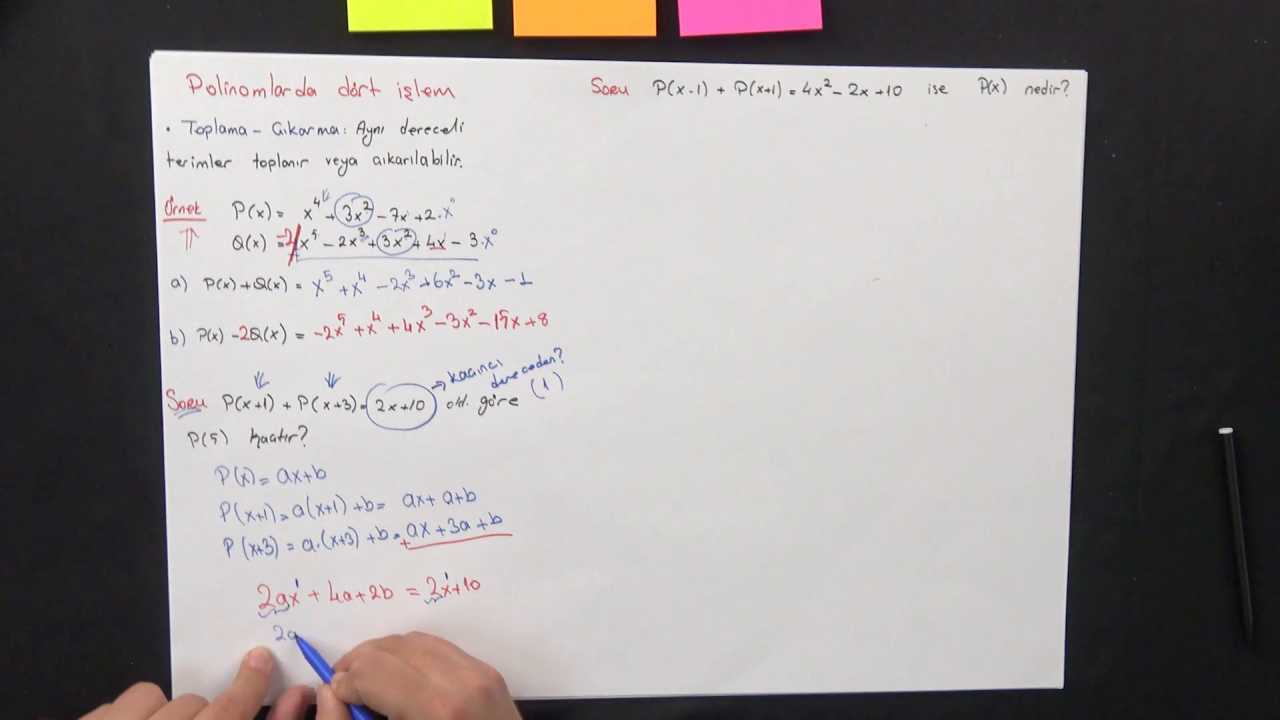 Polinomlarda dört işlem
• Toplama - Çıkarma: Aynı dereceli
terimler toplanır veya çıkarılabilir.
Örnek P(x) = x⁴ + 3x² - 7x + 2.x⁰
Q(x) = -2/x⁵ - 2x³ + 3x² + 4x - 3.x⁰
a) P(x) + Q(x) = x⁵ + x⁴ - 2x³ + 6x² - 3x - 1
b) P(x) - 2Q(x) = -2x⁵ + x⁴ + 4x³ - 3x² - 15x + 8
→ kaçıncı
dereceden?
(1)
Soru P(x+1) + P(x+3) = 2x+10 old. göre
P(5) kaçtır?
P(x) = ax+b
P(x+1) = a(x+1) + b = ax + a+b
P(x+3) = a.(x+3) + b = ax + 3a + b
+
2ax¹ + 4a + 2b = 2x¹ + 10
2a
Soru P(x-1) + P(x+1) = 4x² - 2x + 10 ise P(x) nedir?